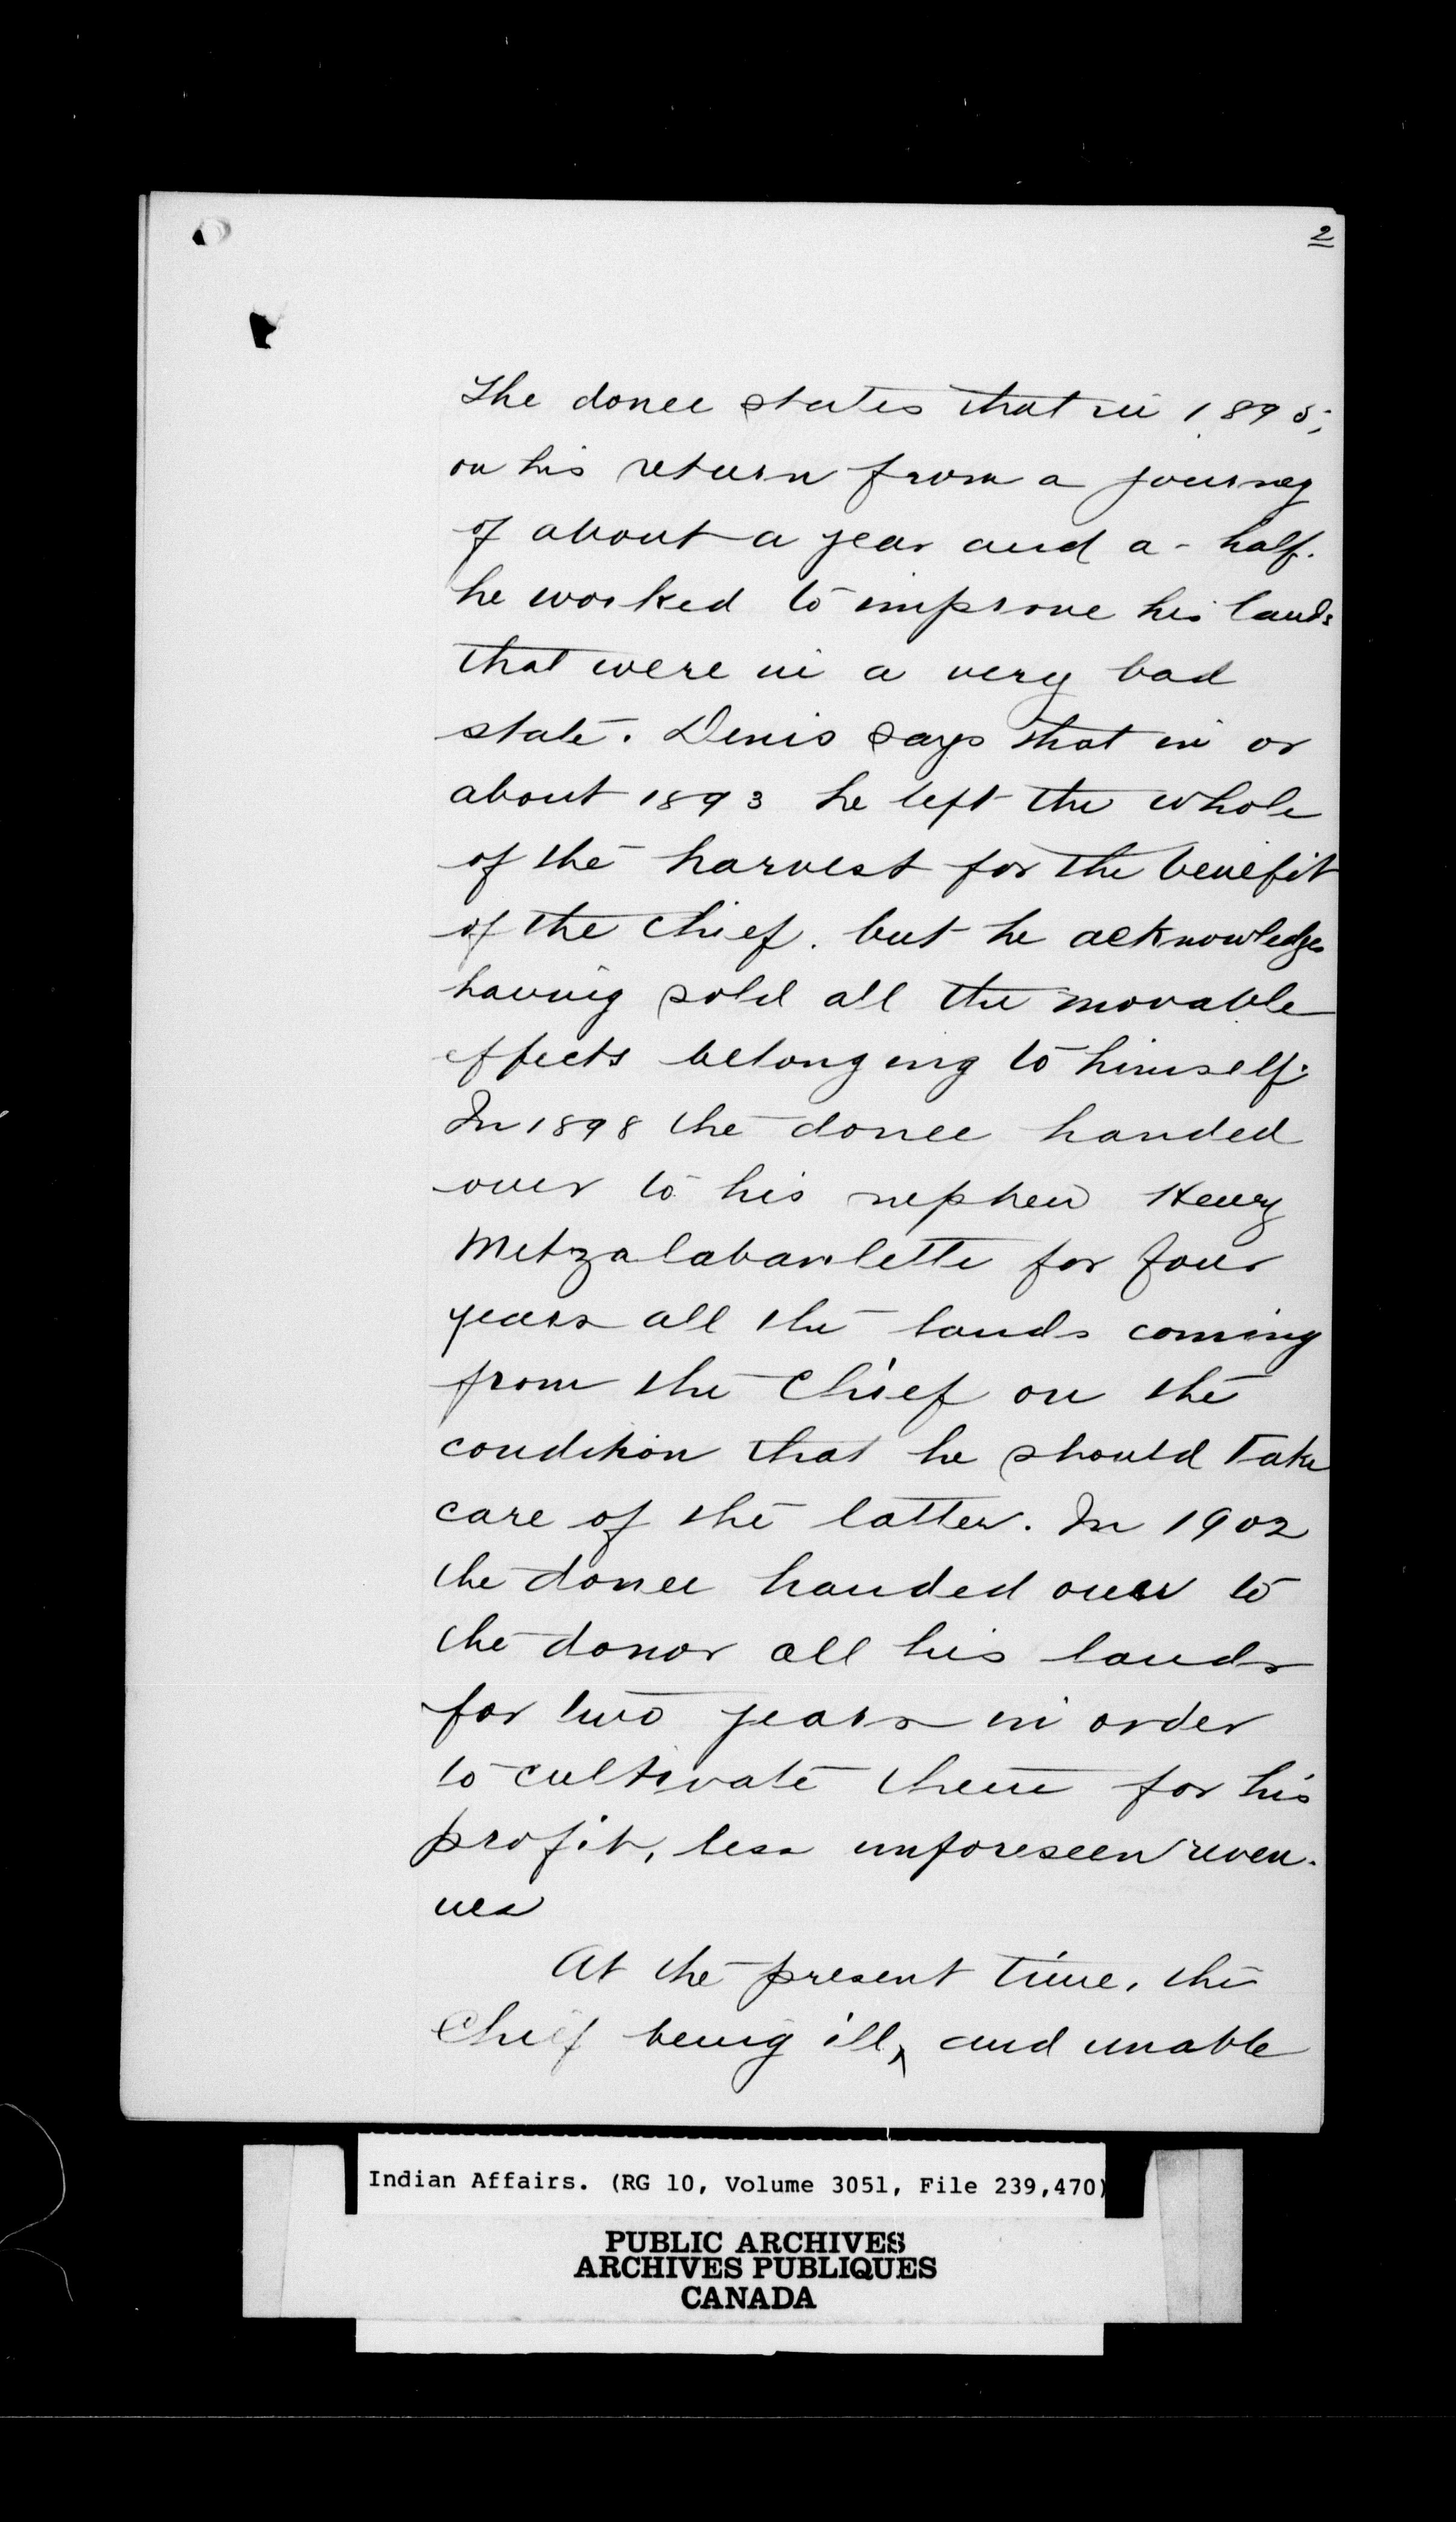 2
The donee states that in 1895,
on his return from a journey
of about a year and a-half.
he worked to improve his lands
that were in a very bad
state. Denis says that in or
about 1893 he left the whole
of the harvest for the benefit
of the chief. but he acknowledges
having sold all the movable
effects belonging to himself.
In 1898 the donee handed
over to his nephew Henry
for four
years all the lands coming
from the Chief on the
condition that he should take
care of the latter. In 1902
the donee handed over to
the donor all his lands
for two years in order
to cultivate them for his
profit, less unforeseen reven-
ues
At the present time, the
Chief being ill, and unable
Indian Affairs. (RG 10, Volume 3051, File 239,470)
PUBLIC ARCHIVES
ARCHIVES PUBLIQUES
CANADA